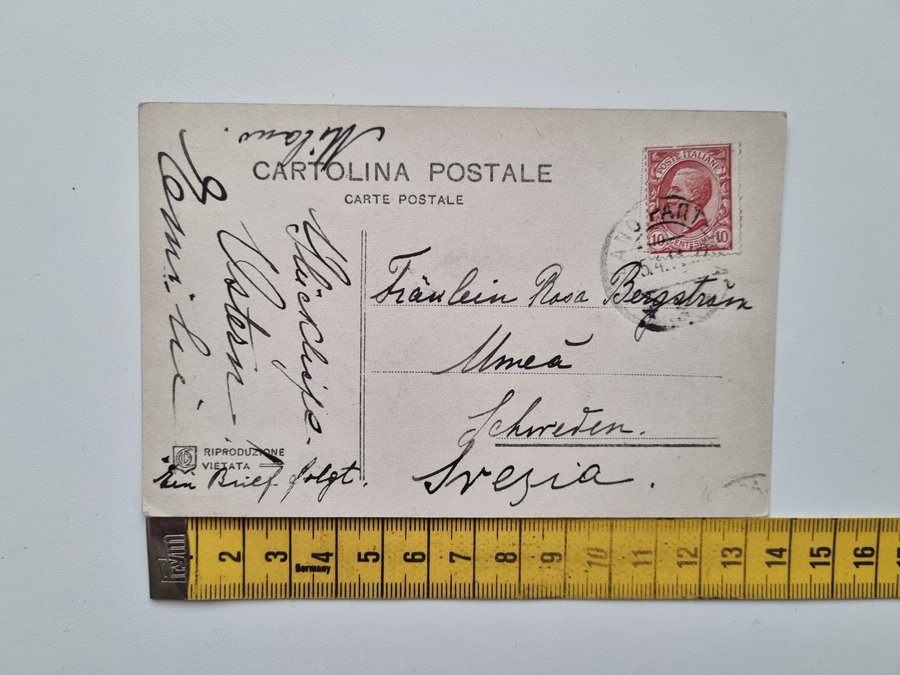 Milano.
CARTOLINA POSTALE
CARTE POSTALE
Glückliche
Ostern
POSTE ITALIANE
10 CENTESIMI 10
Fräulein Rosa Bergström
Umeå
Schweden.
Svezia.
RIPRODUZIONE
VIETATA
Ein Brief folgt.
1 2 3 4 5 6 7 8 9 10 11 12 13 14 15 16 17
Germany